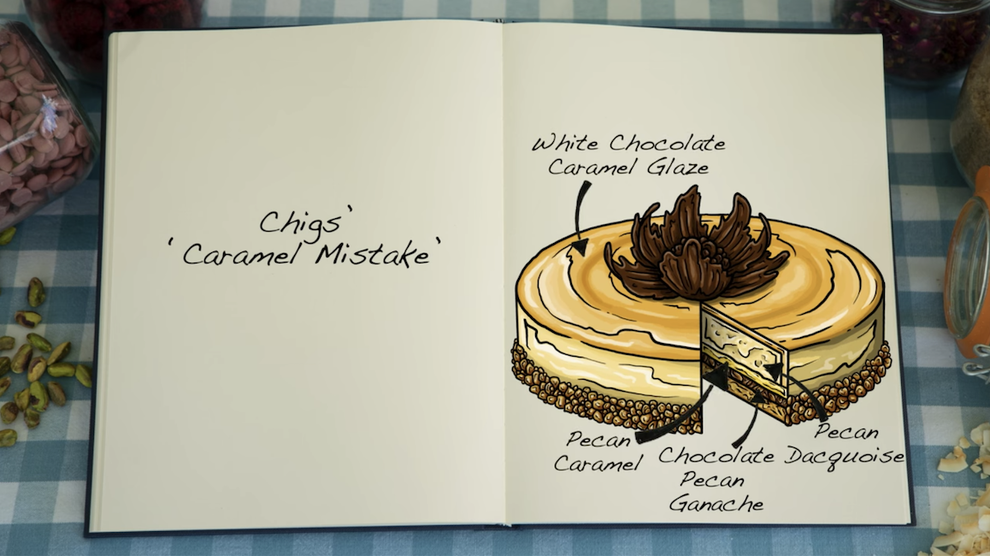 Chigs'
'Caramel Mistake'
White Chocolate
Caramel Glaze
Pecan
Caramel
Chocolate
Pecan
Ganache
Pecan
Dacquoise